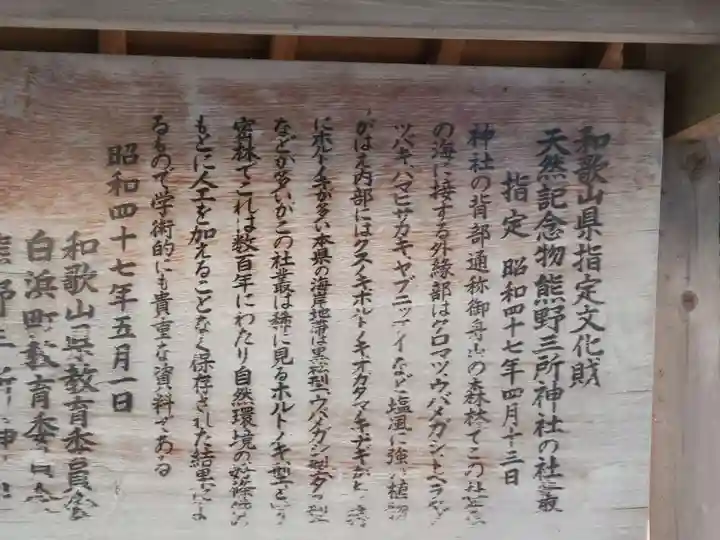 和歌山県指定文化財
天然記念物熊野三所神社の社叢
指定 昭和四十七年四月十三日
神社の背部通称御舟山の森林でこの社叢
の海に接する外縁部はクロマツ、ウバメガシ、トベラ、
ツバキ、ハマヒサカキ、ヤブニッケイなど塩風に強い植物
がはえ内部にはクスノキホルトノキオガタマノキナギ
にホルトノキが多い本県の海岸地帯は黒松型、ウバメガシ型、タブ型
などが多いがこの社叢は稀に見るホルトノキ型という
密林でこれは数百年にわたり自然環境の
もとに人工を加えることなく保存された結果によ
るもので学術的にも貴重な資料である
昭和四十七年五月一日
和歌山県教育委員会
白浜町教育委員会
熊野三所神社